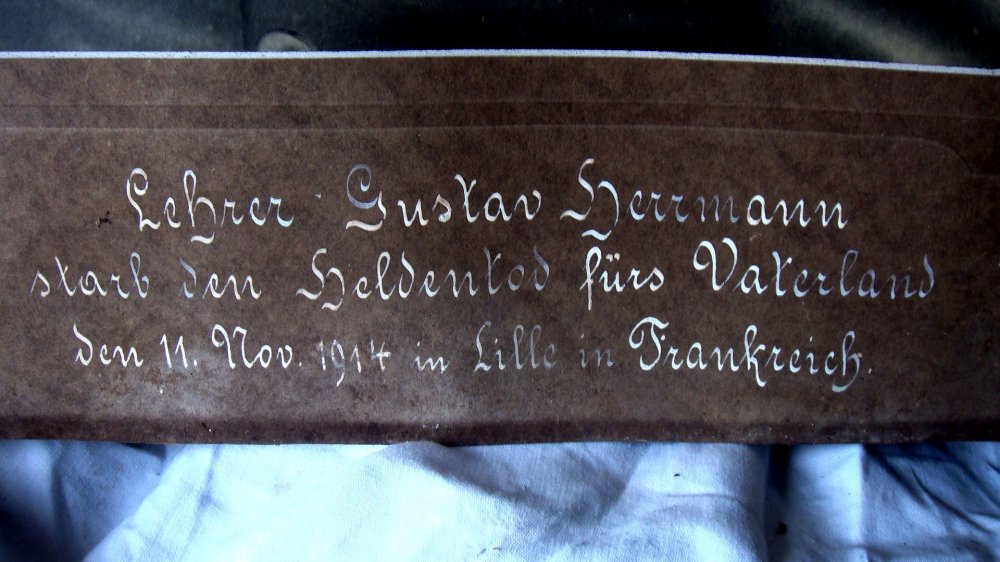 Lehrer Gustav Herrmann
starb den Heldentod fürs Vaterland
den 11. Nov. 1914 in Lille in Frankreich.